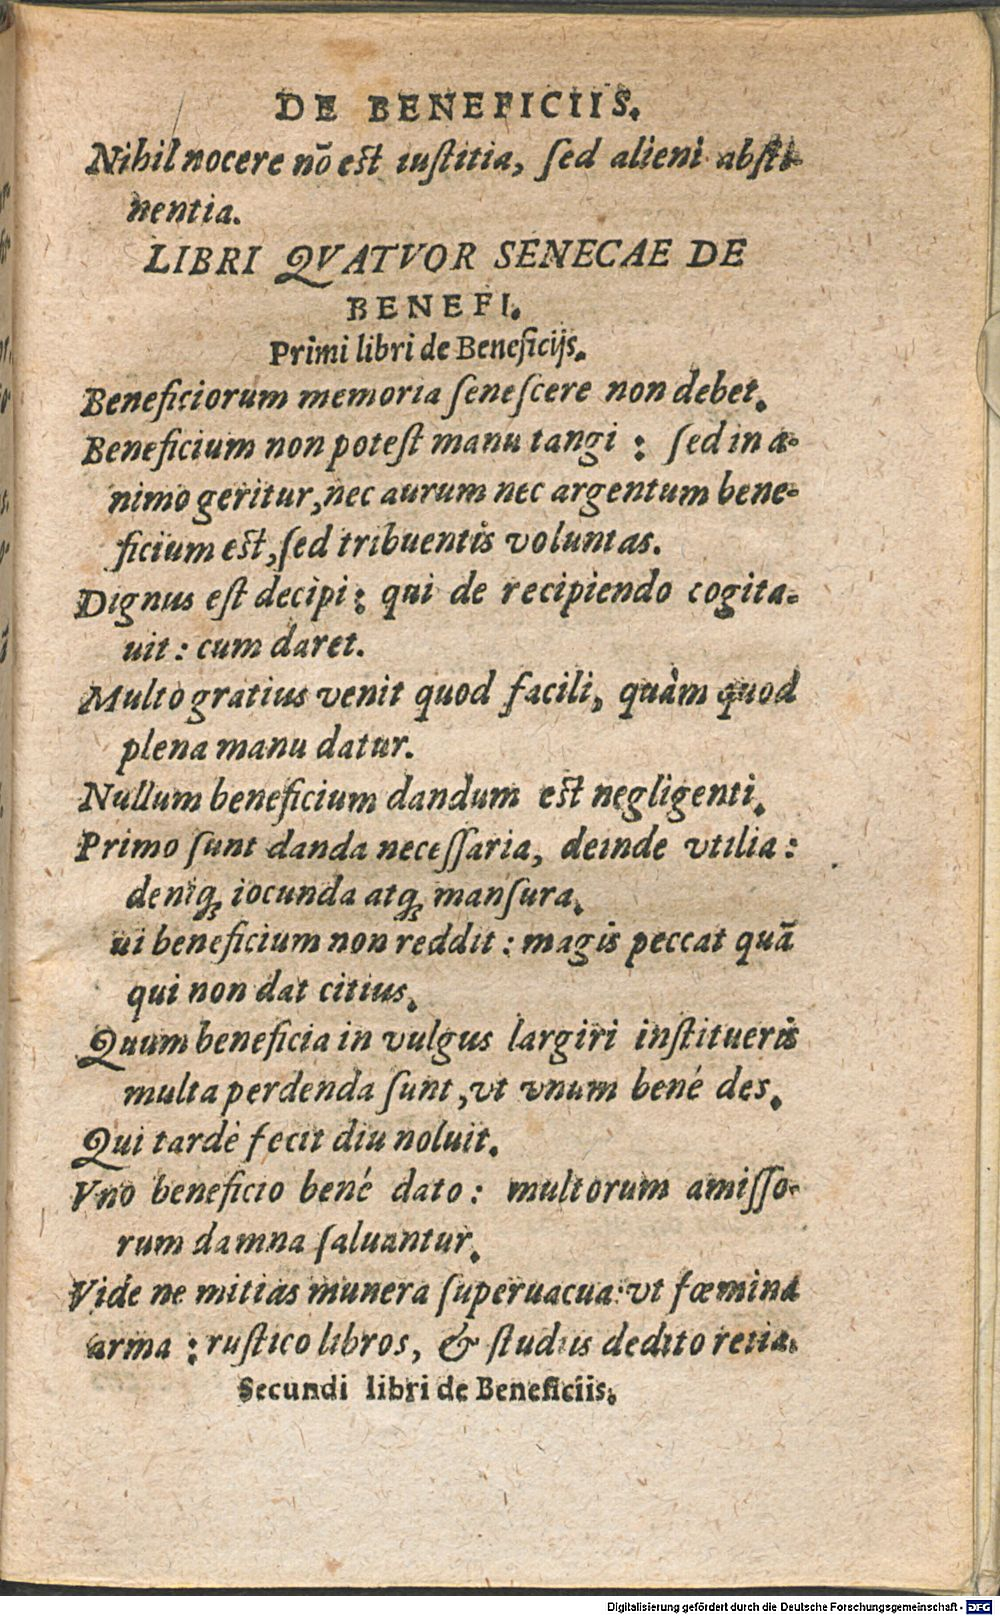 DE BENEFICIIS.
Nihil nocere nō est iustitia, sed alieni absti-
nentia.
LIBRI QVATVOR SENECAE DE
BENEFI.
Primi libri de Beneficijs.
Beneficiorum memoria senescere non debet.
Beneficium non potest manu tangi : sed in a-
nimo geritur, nec aurum nec argentum bene-
ficium est, sed tribuentis voluntas.
Dignus est decipi : qui de recipiendo cogita-
uit : cum daret.
Multo gratius venit quod facili, quàm quod
plena manu datur.
Nullum beneficium dandum est negligenti.
Primo sunt danda necessaria, deinde vtilia :
deniq; iocunda atq; mansura.
ui beneficium non reddit : magis peccat quā
qui non dat citius.
Quum beneficia in vulgus largiri institueris
multa perdenda sunt, vt vnum bené des.
Qui tardè fecit diu noluit.
Vno beneficio bené dato : multorum amisso-
rum damna saluantur.
Vide ne mitias munera superuacua : vt fœmina
arma : rustico libros, & studiis dedito retia.
Secundi libri de Beneficiis.
Digitalisierung gefördert durch die Deutsche Forschungsgemeinschaft - DFG